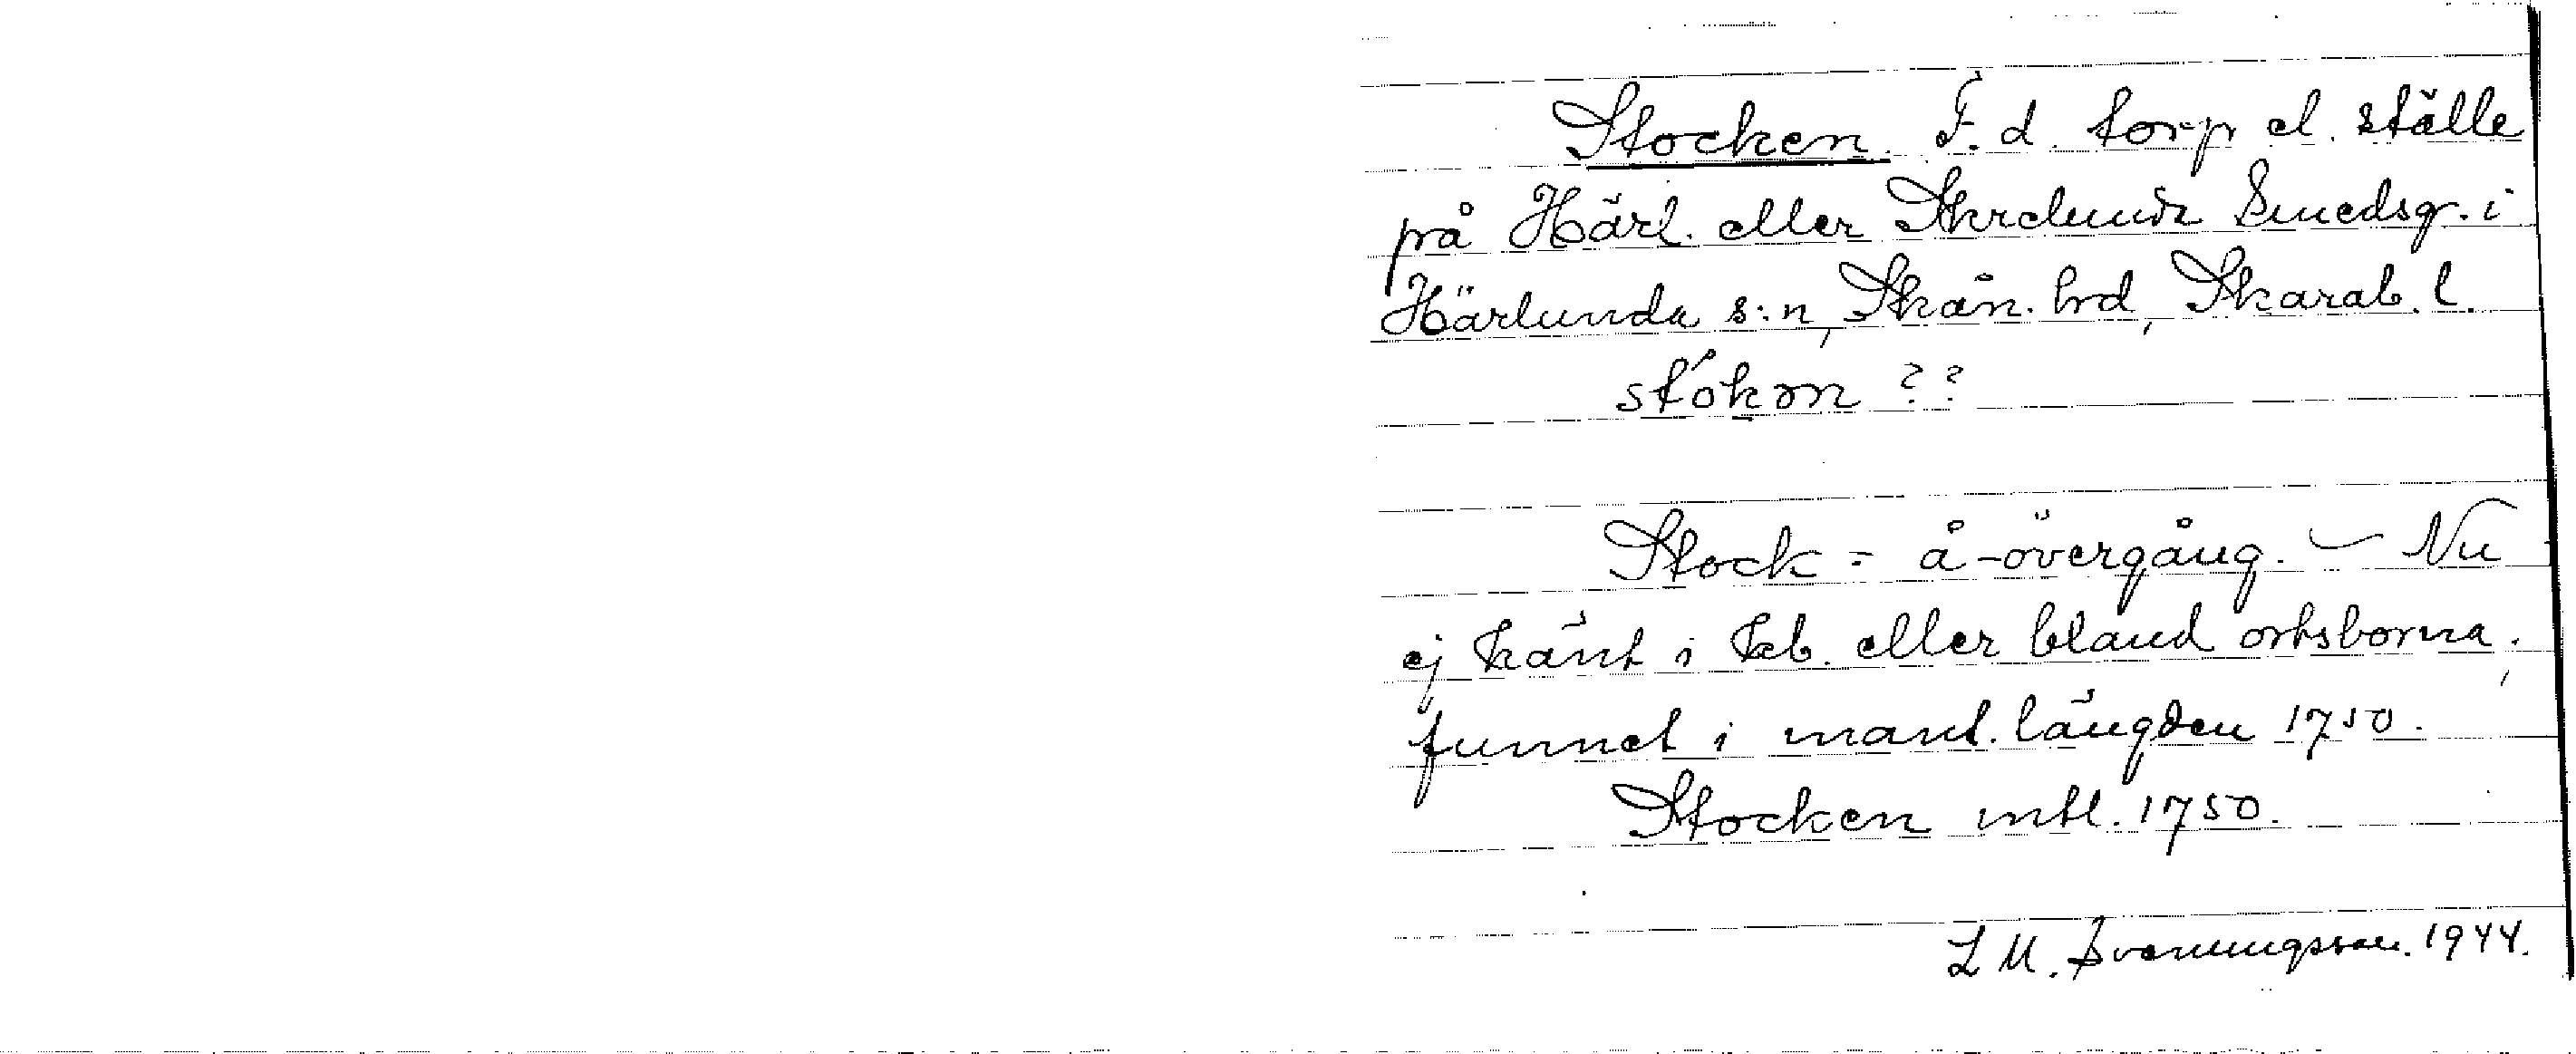 Stocken. F. d. torp el. ställe
på Härl. eller Skrelunda Smedsgr. i
Härlunda s:n, Skån. hrd, Skarab. l.
stókən ??
Stock = å-övergång. – Nu
ej känt i kb. eller bland ortsborna;
funnet i mant. längden 1750.
Stocken mtl. 1750.
L M. Svenungsson. 1944.